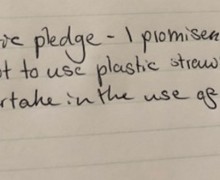 ic pledge - I promise
ot to use plastic straw
rtake in the use of